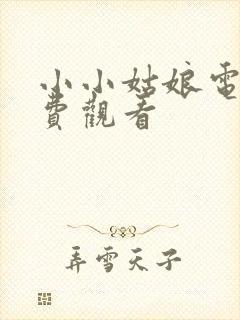 小小姑娘電
費觀看
弄雪天子